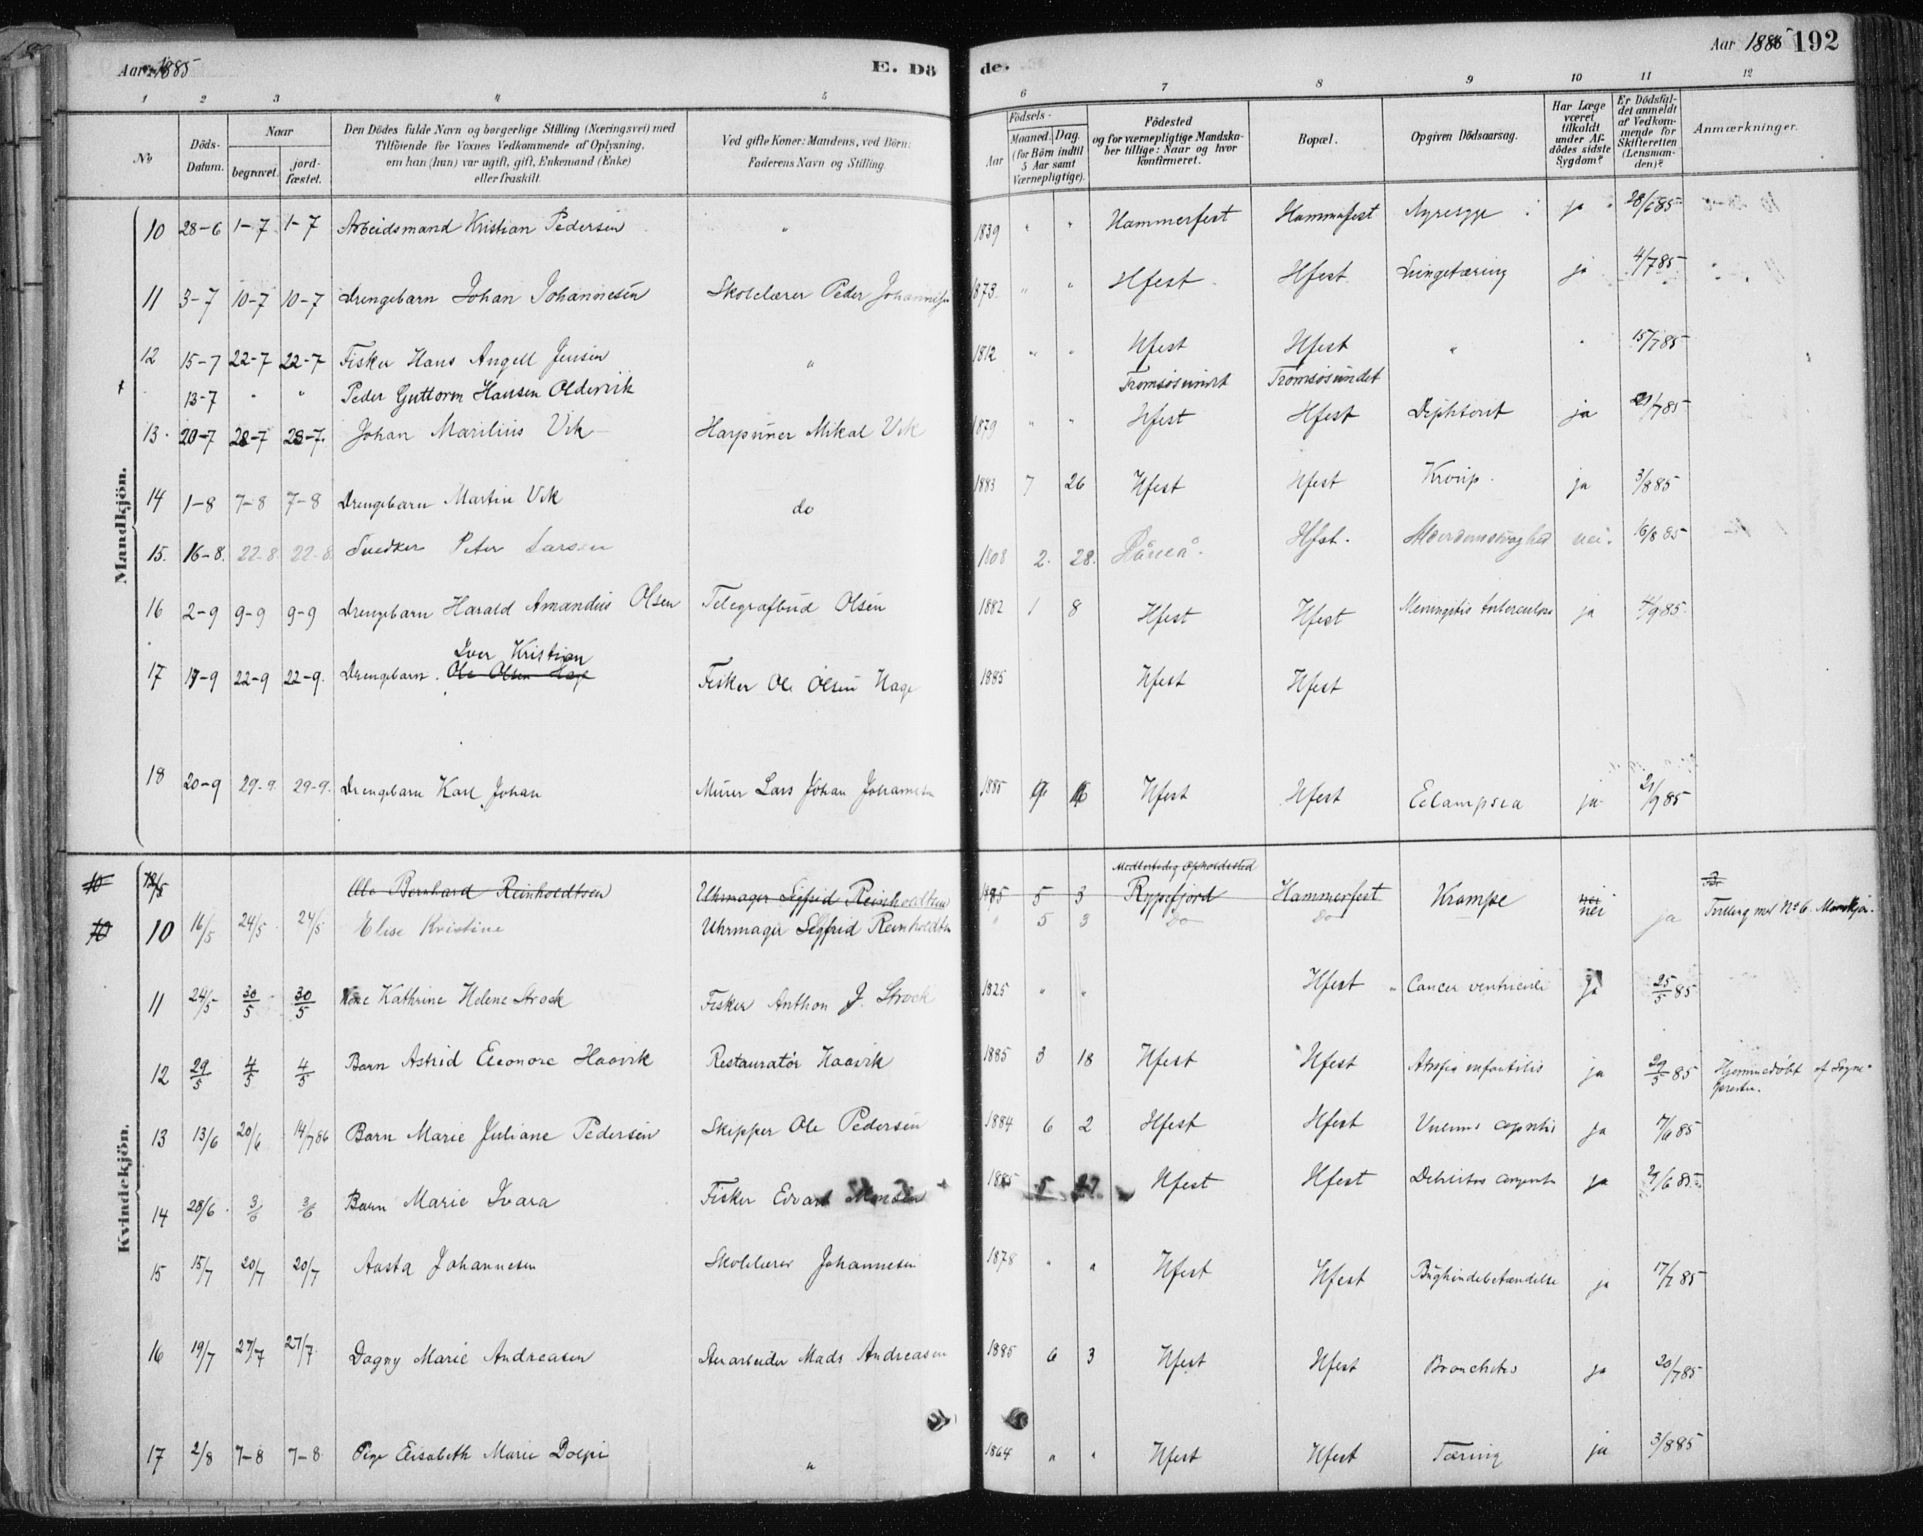 Aar 1885
E. Dö
de.
Aar 1885
192
1 2 3 4 5 6 7 8 9 10 11 12
No
Döds-Datum.
Naar
begravet.
jord-fæstet.
Den Dödes fulde Navn og borgerlige Stilling (Næringsvei) med
Tilföiende for Voxnes Vedkommende af Oplysning,
om han (hun) var ugift, gift, Enkemand (Enke)
eller fraskilt.
Ved gifte Koner: Mandens, ved Börn:
Faderens Navn og Stilling.
Födsels-
Aar
Maaned. Dag.
(for Börn indtil
5 Aar samt
Værnepligtige).
Födested
og for værnepligtige Mandska-
ber tillige: Naar og hvor
konfirmeret.
Bopæl.
Opgiven Dödsaarsag.
Har Læge
været
tilkaldt
under Af-
dödes sidste
Sygdom?
Er Dödsfal-
det anmeldt
af Vedkom-
mende for
Skifteretten
(Lensman-
den)?
Anmærkninger.
Mandkjön.
10 28-6 1-7 1-7 Arbeidsmand Kristian Pedersen " 1839 " " Hammerfest Hammerfest Nyresyge ja 28/6 85
11 3-7 10-7 10-7 Drengebarn Johan Johannesen Skolelærer Peder Johannesen 1873 " " Hfest Hfest Lungetæring ja 4/7 85
12 15-7 22-7 22-7 Fisker Hans Angell Jensen " 1812 " " Hfest Hfest " " 15/7 85
13-7 " " Peder Guttorm Hansen Oldervik Tromsösundet Tromsösundet
13 20-7 28-7 28-7 Johan Marilius Vik Harpuner Mikal Vik 1879 " " Hfest Hfest Diphterit ja 21/7 85
14 1-8 7-8 7-8 Drengebarn Martin Vik do 1883 7 26 Hfest Hfest Kroup ja 3/8 85
15. 16-8. 22-8 22-8 Snedker Peter Larsen 1808 2. 28. Hfst. Alderdomssvaghed nei. 16/8 85
16 2-9 9-9 9-9 Drengebarn Harald Amandus Olsen Telegrafbud Olsen 1882 1 8 Hfest Hfest Meningitis tuberculosa ja 4/9 85
Iver Kristian
17 17-9 22-9 22-9 Drengebarn Ole Olsen Hage Fisker Ole Olsen Hage 1885 Hfest Hfest
18 20-9 29-9 29-9 Drengebarn Karl Johan Murer Lars Johan Johannesen 1885 Hfest Hfest Eclampsia ja 21/9 85
Kvindekjön.
Midlertidig Opholdssted
10 Ole Bernhard Reinholdtsen Uhrmager Sigfrid Reinholdtsen 1885 5 3 Rypefjord Hammerfest Krampe nei
10 10 16/5 24/5 24/5 Elise Kristine Uhrmager Sigfrid Reinholdtsen " 5 3 Do Do nei ja Tvilling med No 6 Mandkjön.
11 24/5 30/5 30/5 Kone Kathrine Helene Strock Fisker Anthon J. Strock 1825 " " Hfest Cancer ventriculi ja 25/5 85
12 29/5 4/5 4/5 Barn Astrid Eleonore Haavik Restauratör Haavik 1885 3 18 Hfest Hfest Atrofia infantilis ja 29/5 85 Hjemmedöbt af Sogne-
presten.
13 13/6 20/6 14/7 86 Barn Marie Juliane Pedersen Skipper Ole Pedersen 1884 6 2 Hfest Hfest ja 85
14 28/6 3/6 3/6 Barn Marie Ivara Fisker Edvard Monsen 1885 5 27 Hfest Hfest Debilitas congenita ja 29/6 85
15 15/7 20/7 20/7 Aasta Johannesen Skolelærer Johannesen 1878 " " Hfest Hfest Bughindebetændelse ja 17/7 85
16 19/7 27/7 27/7 Dagny Marie Andreasen Mads Andreasen 1885 6 3 Hfest Hfest Bronchitis ja 20/7 85
17 2/8 7-8 7-8 Pige Elisabeth Marie Dolpi " 1864 " " Hfest Hfest Tæring ja 3/8 85